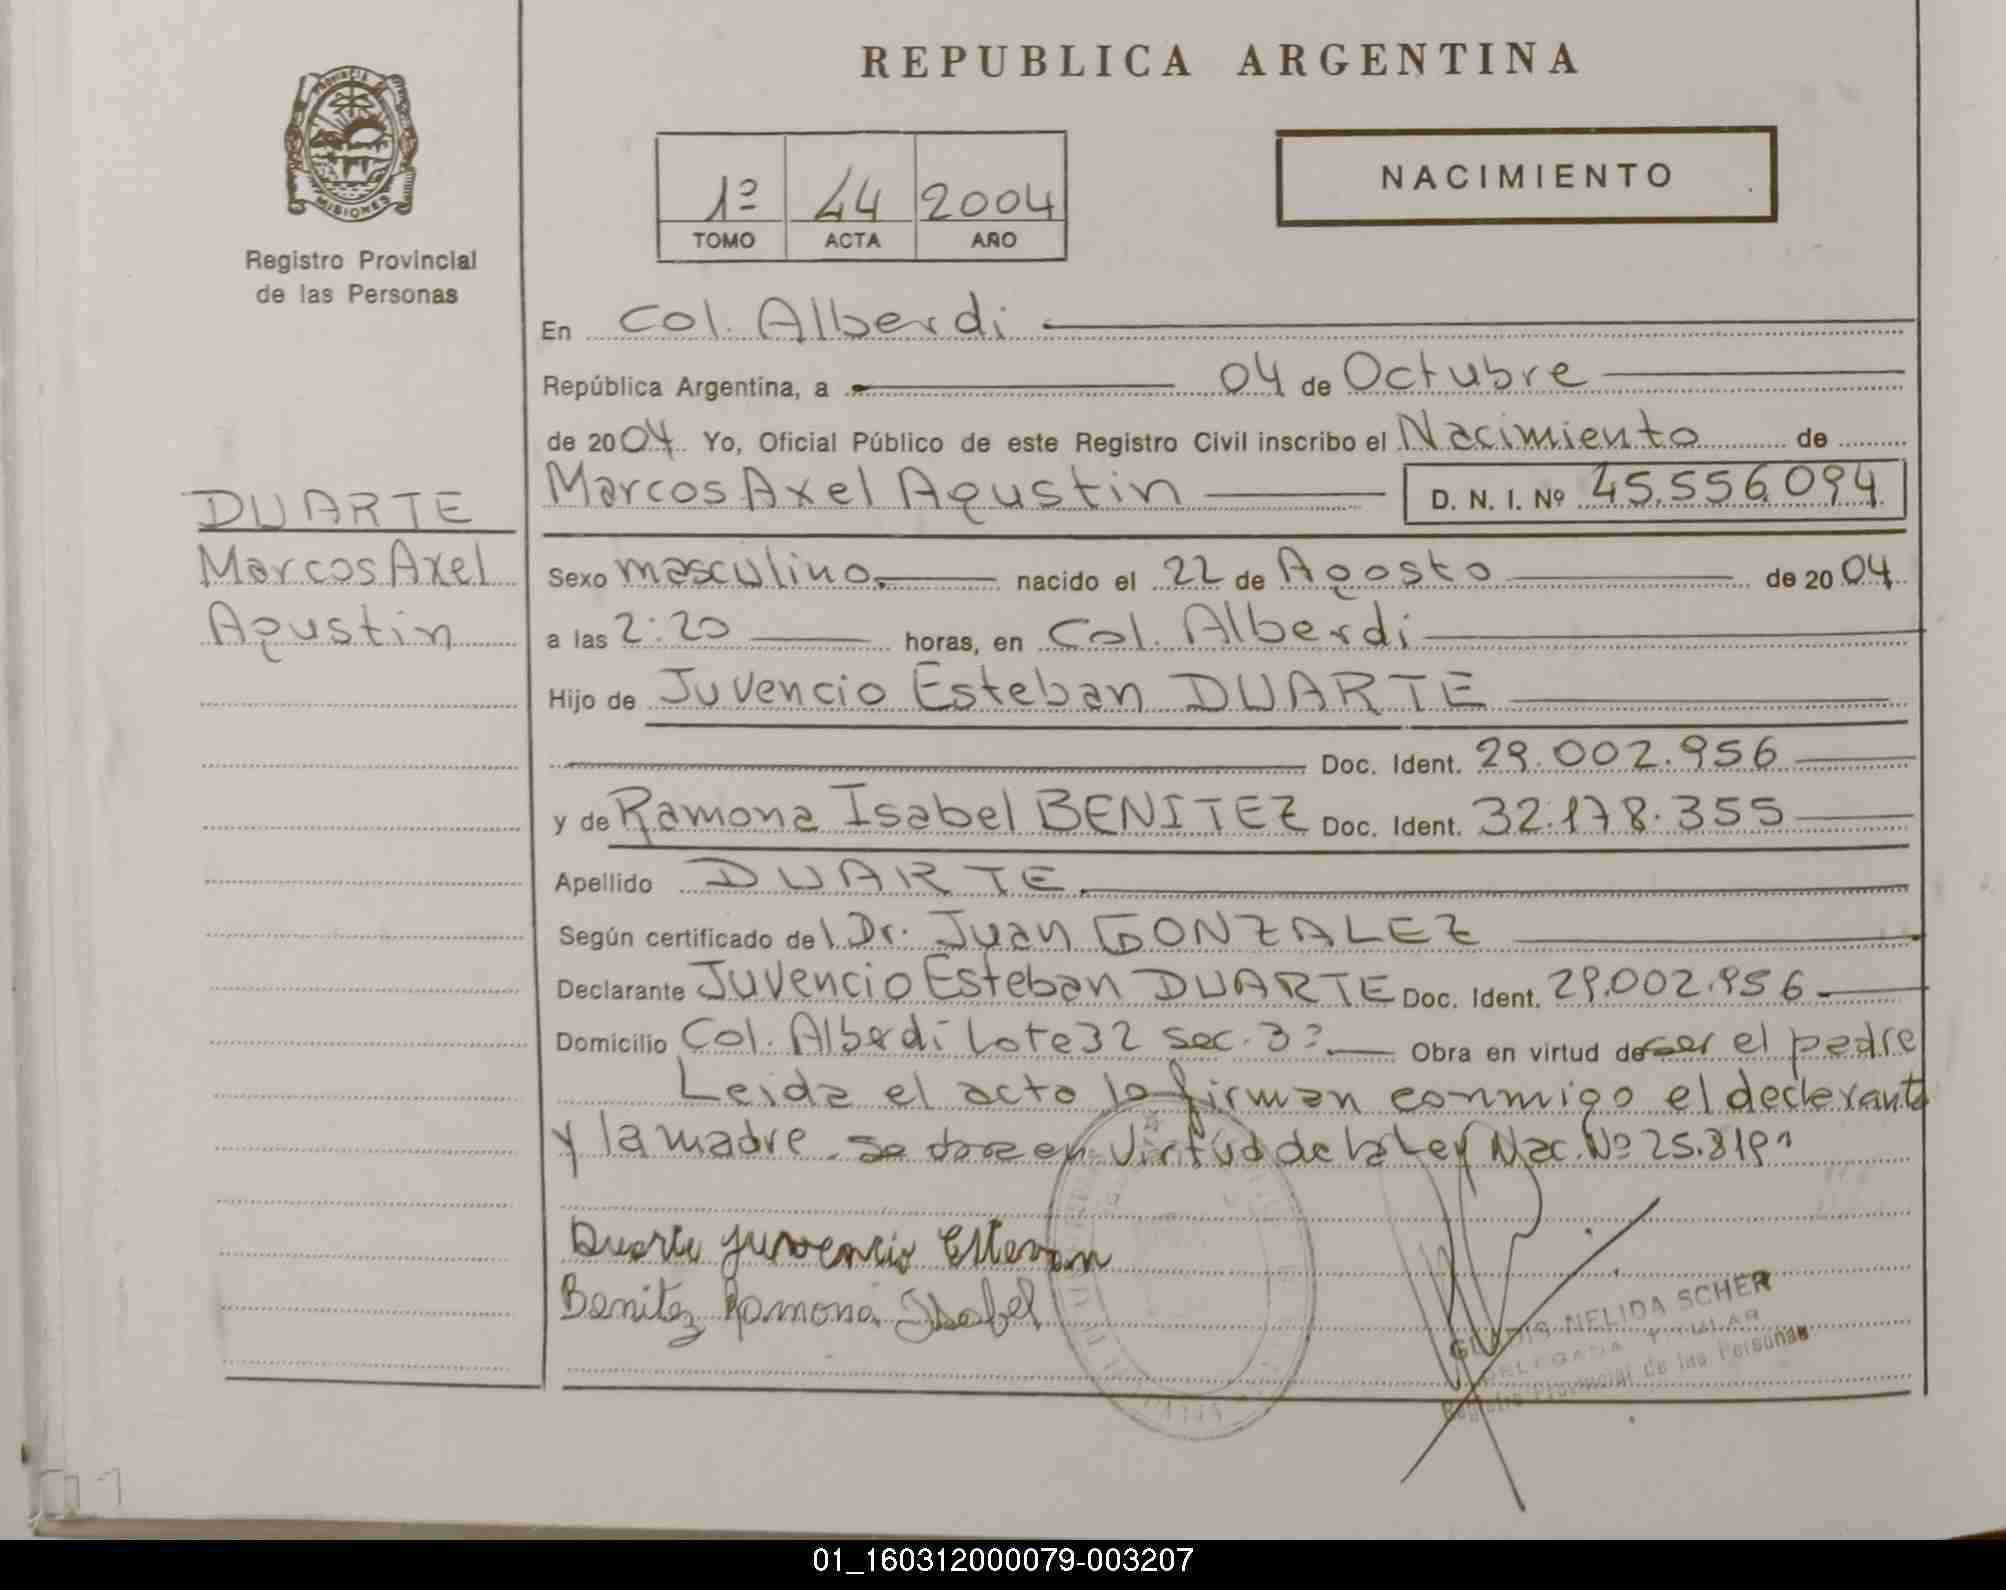 REPUBLICA ARGENTINA
PROVINCIA DE
MISIONES
Registro Provincial
de las Personas
1º 44 2004
TOMO ACTA AÑO
NACIMIENTO
En Col. Alberdi
República Argentina, a 04 de Octubre
de 2004 Yo, Oficial Público de este Registro Civil inscribo el Nacimiento de
Marcos Axel Agustin D. N. I. Nº 45.556.094
DUARTE
Marcos Axel
Agustin
Sexo masculino. nacido el 22 de Agosto de 2004
a las 2:20 horas, en Col. Alberdi
Hijo de Juvencio Esteban DUARTE
Doc. Ident. 29.002.956
y de Ramona Isabel BENITEZ Doc. Ident. 32.178.355
Apellido DUARTE.
Según certificado del Dr. Juan GONZALEZ
Declarante Juvencio Esteban DUARTE Doc. Ident. 29.002.956
Domicilio Col. Alberdi Lote 32 sec. 3ª. Obra en virtud de ser el padre
Leida el acta la firman conmigo el declarante
y la madre. se en virtud de la Ley Nac. Nº 25.819
Duarte Juvencio Estevan
Benitez Ramona Isabel
GLADIS NELIDA SCHER
DELEGADA TITULAR
Registro Provincial de las Personas
01_160312000079-003207